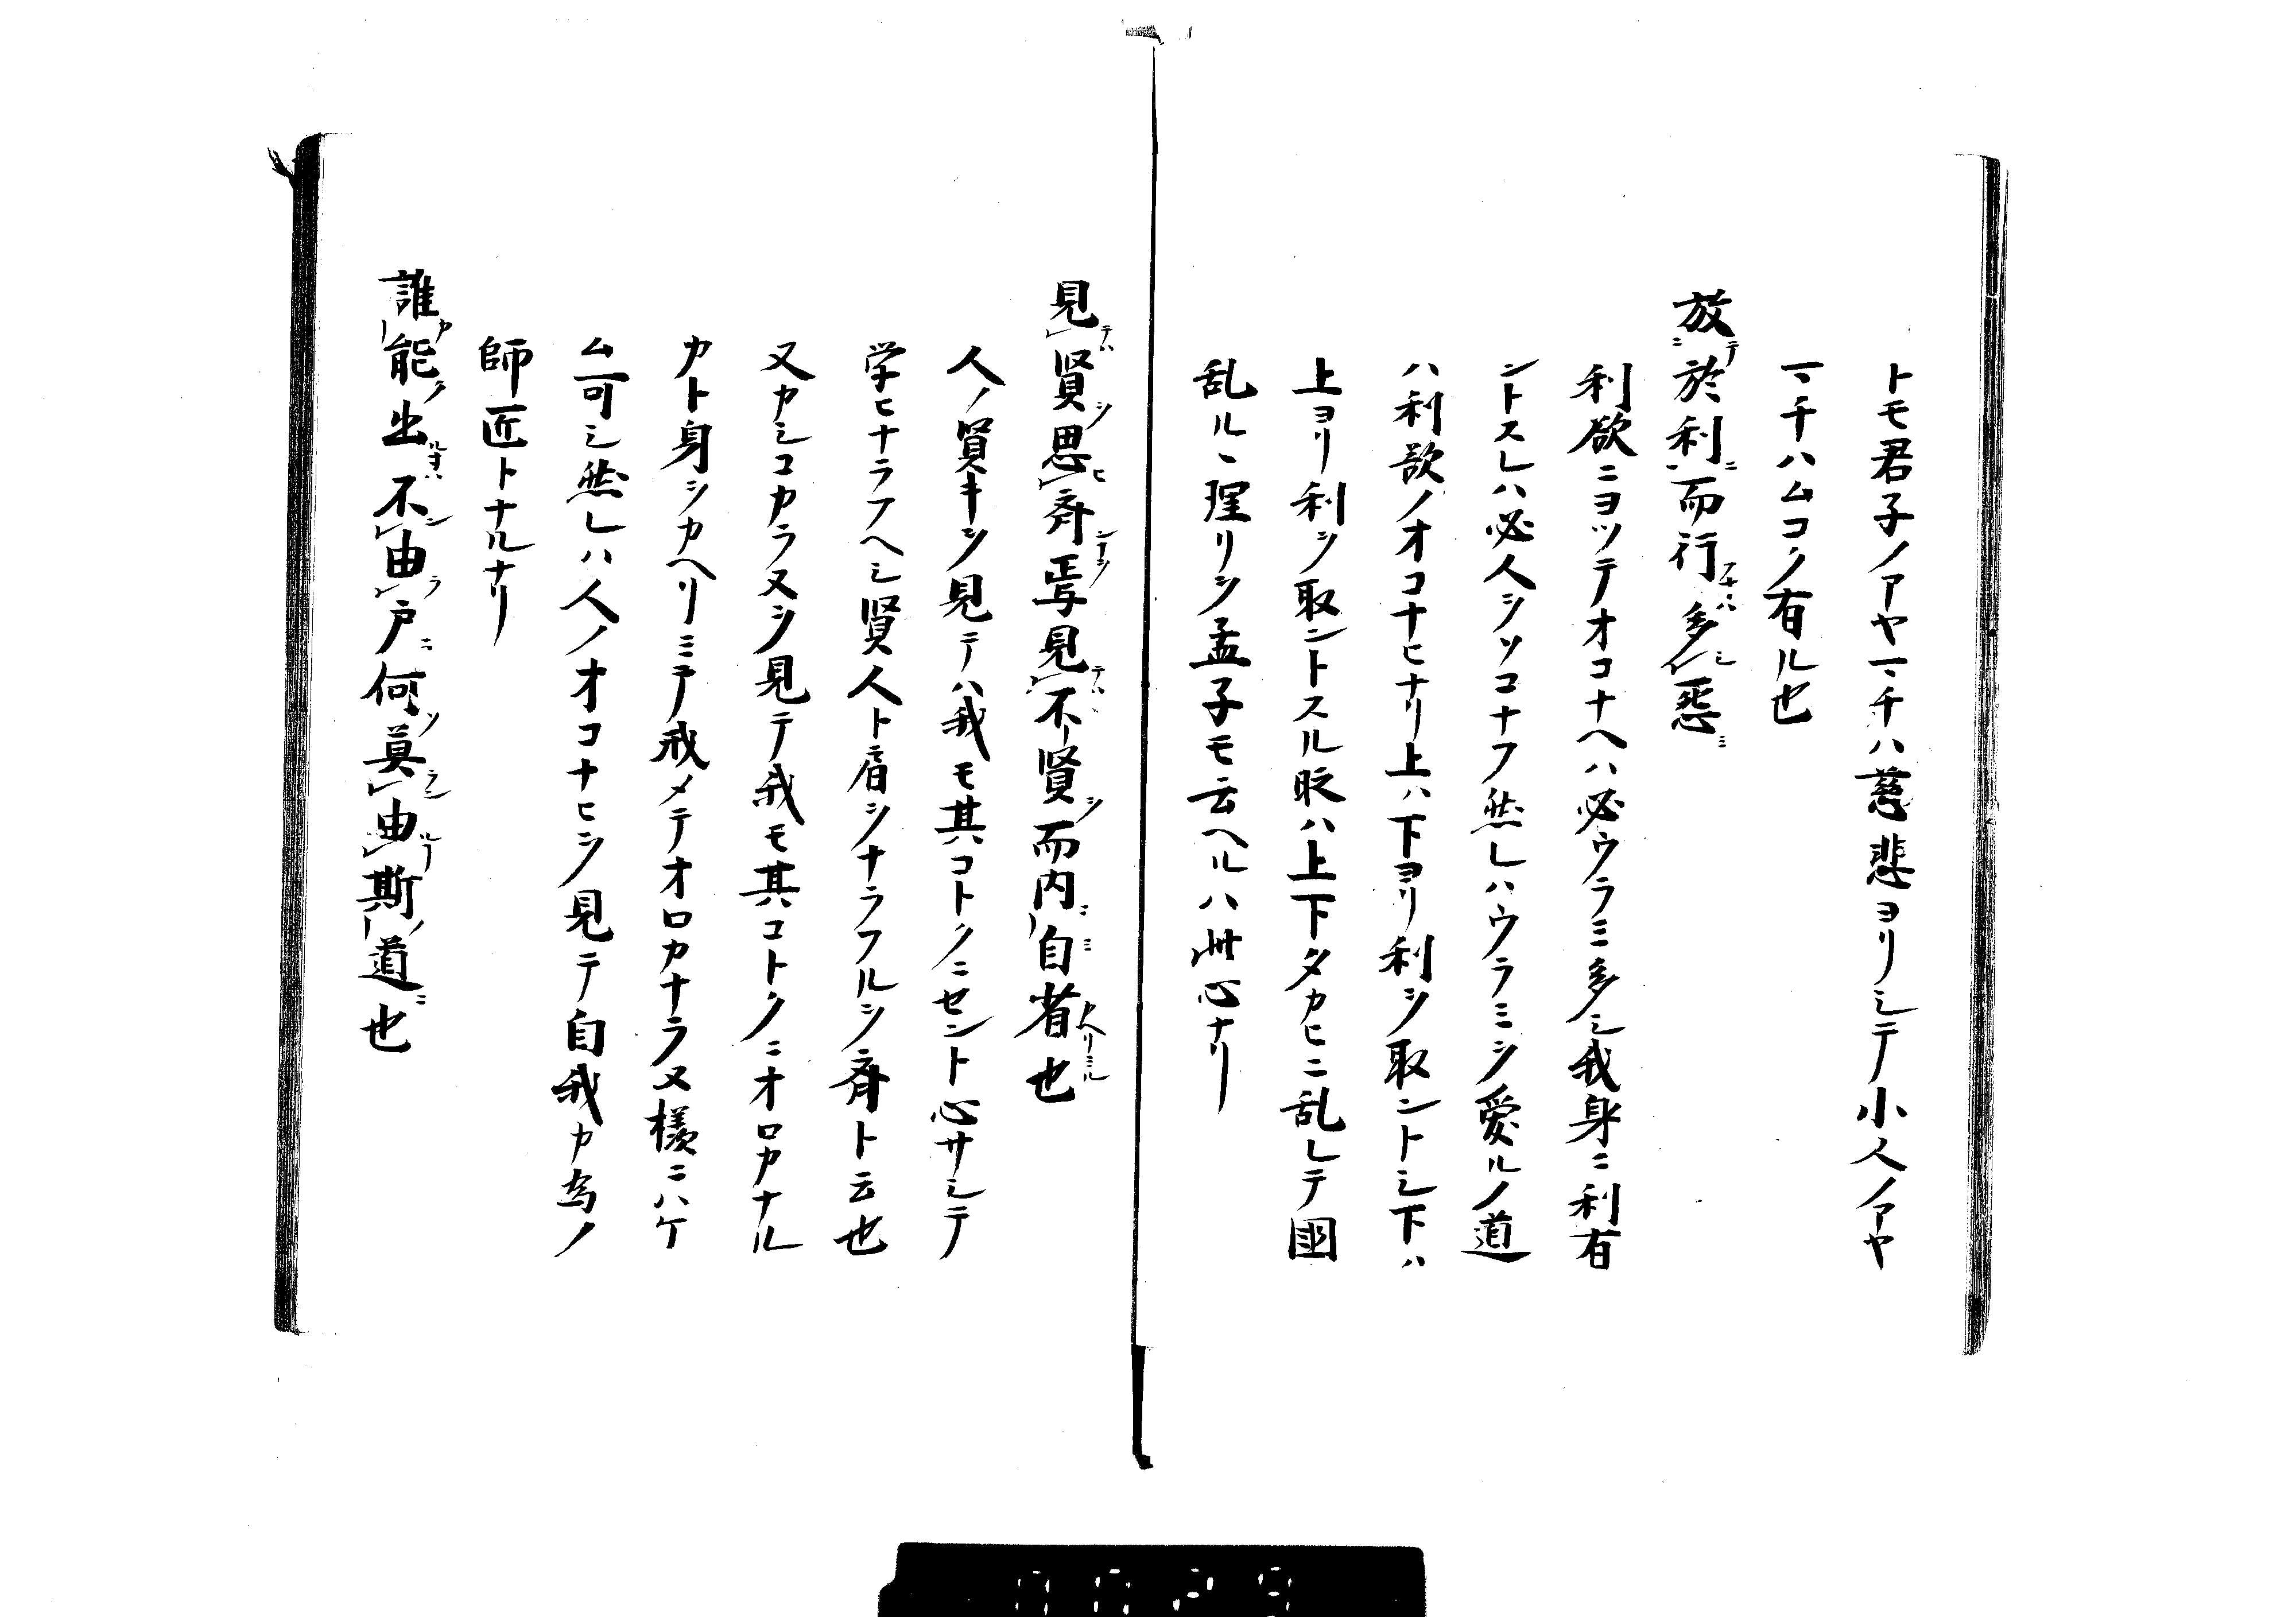 トモ君子ノアヤマチハ慈悲ヨリシテ小人ノアヤ
マチハムコノ有ル也
放テ於利ニ而行フトキハ多シ悪ミ
利欲ニヨツテオコナヘハ必ウラミ多シ我身ニ利有
ントスレハ必人ヲソコナフ然レハウラミヲ愛ルノ道
ハ利欲ノオコナヒナリ上ハ下ヨリ利ヲ取ントシ下ハ
上ヨリ利ヲ取ントスル時ハ上下タカヒニ乱レテ國
乱ルヽ理リヲ孟子モ云ヘルハ此心ナリ
見テハ賢ヲ思ヒ斉ンコトヲ焉見テハ不賢ヲ而内ニ自ミ省カヘリミル也
人ノ賢キヲ見テハ我モ其コトクニセント心サシテ
学ヒナラフヘシ賢人ト肩ヲナラフルヲ斉ト云也
又カシコカラヌヲ見テ我モ其コトクニオロカナル
カト身ヲカヘリミテ戒メテオロカナラヌ様ニハケ
ム可シ然レハ人ノオコナヒヲ見テ自我カ為ノ
師匠トナルナリ
誰カ能ク出ルトキハ不ン由ラ戸ニ何ソ莫ラン由ルコト斯ノ道ニ也